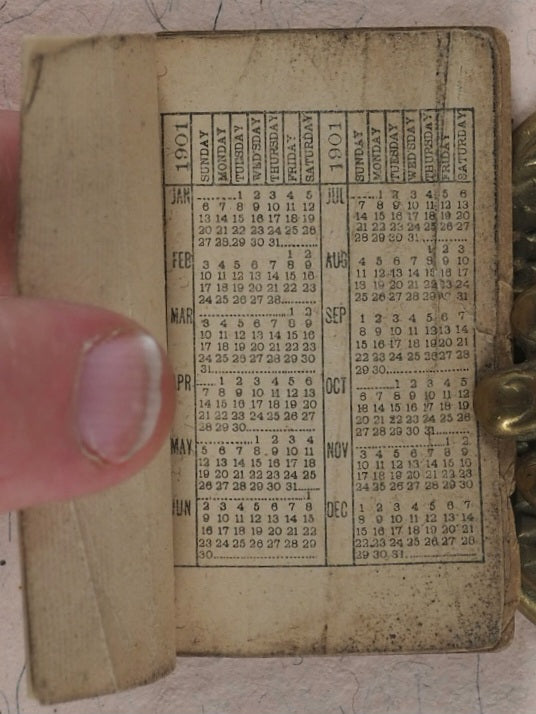 1901 SUNDAY MONDAY TUESDAY WED'SDAY THURSDAY FRIDAY SATURDAY
JAN ........ 1 2 3 4 5
6 7 8 9 10 11 12
13 14 15 16 17 18 19
20 21 22 23 24 25 26
27 28 29 30 31 ........
FEB ........ 1 2
3 4 5 6 7 8 9
10 11 12 13 14 15 16
17 18 19 20 21 22 23
24 25 26 27 28 ........
MAR ........ 1 2
3 4 5 6 7 8 9
10 11 12 13 14 15 16
17 18 19 20 21 22 23
24 25 26 27 28 29 30
31 ........
PR ..... 1 2 3 4 5 6
7 8 9 10 11 12 13
14 15 16 17 18 19 20
21 22 23 24 25 26 27
28 29 30 ........
MAY ........ 1 2 3 4
5 6 7 8 9 10 11
12 13 14 15 16 17 18
19 20 21 22 23 24 25
26 27 28 29 30 31 .....
JUN ........ 1
2 3 4 5 6 7 8
9 10 11 12 13 14 15
16 17 18 19 20 21 22
23 24 25 26 27 28 29
30 ........
1901 SUNDAY MONDAY TUESDAY WED'SDAY THURSDAY FRIDAY SATURDAY
JUL ..... 1 2 3 4 5 6
7 8 9 10 11 12 13
14 15 16 17 18 19 20
21 22 23 24 25 26 27
28 29 30 31 ........
AUG ........ 1 2 3
4 5 6 7 8 9 10
11 12 13 14 15 16 17
18 19 20 21 22 23 24
25 26 27 28 29 30 31
SEP 1 2 3 4 5 6 7
8 9 10 11 12 13 14
15 16 17 18 19 20 21
22 23 24 25 26 27 28
29 30 ........
OCT ........ 1 2 3 4 5
6 7 8 9 10 11 12
13 14 15 16 17 18 19
20 21 22 23 24 25 26
27 28 29 30 31 ........
NOV ........ 1 2
3 4 5 6 7 8 9
10 11 12 13 14 15 16
17 18 19 20 21 22 23
24 25 26 27 28 29 30
DEC 1 2 3 4 5 6 7
8 9 10 11 12 13 14
15 16 17 18 19 20 21
22 23 24 25 26 27 28
29 30 31 ........